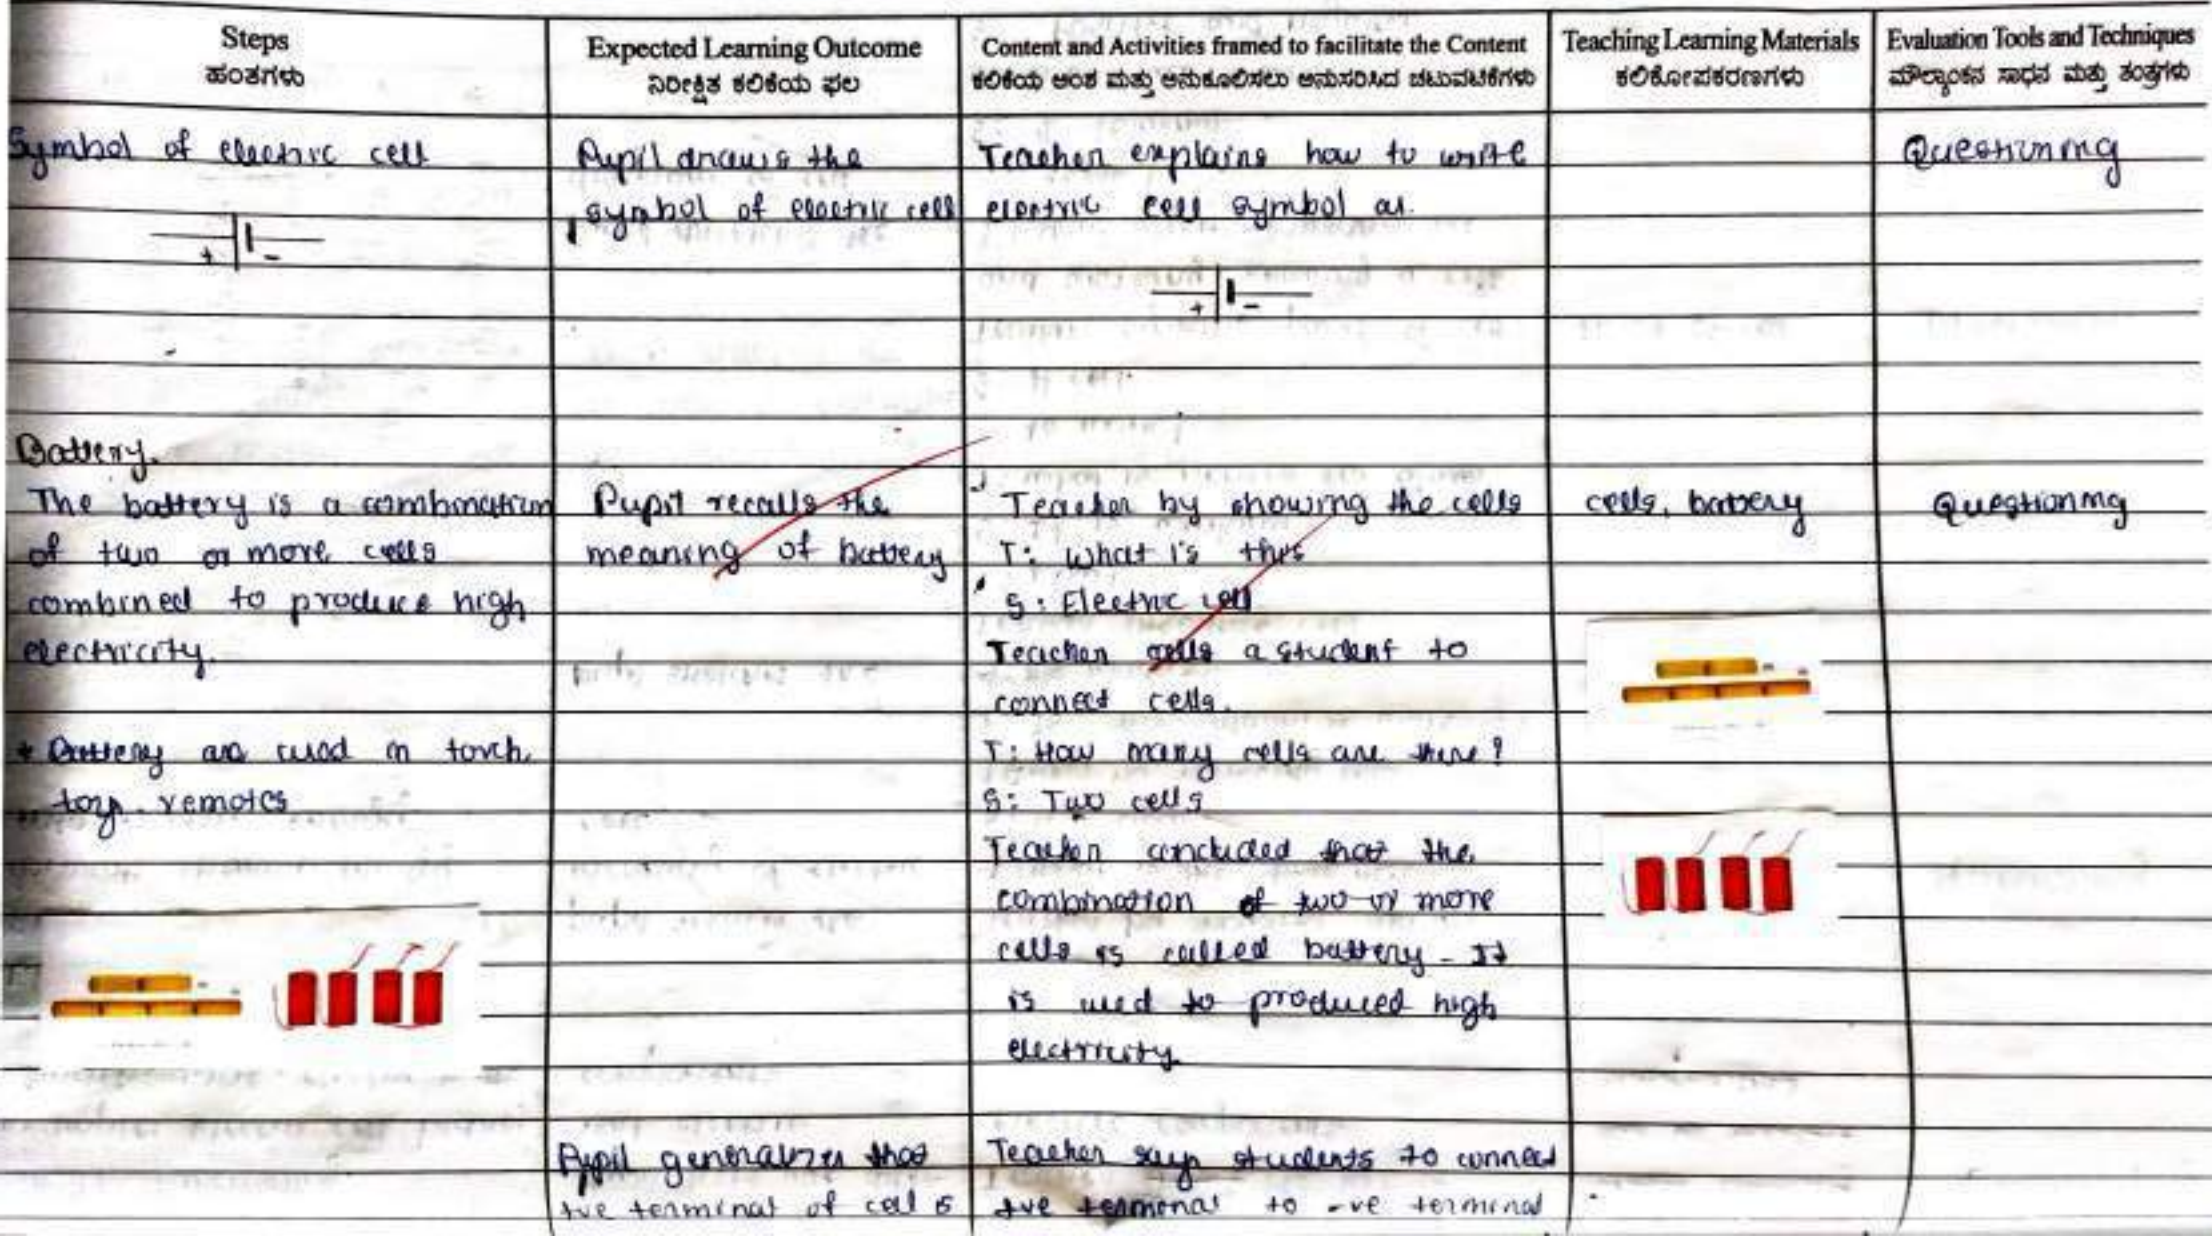 Steps
ಹಂತಗಳು
Expected Learning Outcome
ನಿರೀಕ್ಷಿತ ಕಲಿಕೆಯ ಫಲ
Content and Activities framed to facilitate the Content
ಕಲಿಕೆಯ ಅಂಶ ಮತ್ತು ಅನುಕೂಲಿಸಲು ಅನುಸರಿಸಿದ ಚಟುವಟಿಕೆಗಳು
Teaching Learning Materials
ಕಲಿಕೋಪಕರಣಗಳು
Evaluation Tools and Techniques
ಮೌಲ್ಯಾಂಕನ ಸಾಧನ ಮತ್ತು ತಂತ್ರಗಳು
Symbol of electric cell
+ -
Pupil draws the
symbol of electric cell
Teacher explains how to write
electric cell symbol as.
+ -
Questioning
Battery.
The battery is a combination
of two or more cells
combined to produce high
electricity.
* Battery are used in torch,
toys. remotes
Pupil recalls the
meaning of battery
Teacher by showing the cells
T: What is this
S: Electric cell
Teacher calls a student to
connect cells.
T: How many cells are there?
S: Two cells
Teacher concluded that the
combination of two or more
cells is called battery - It
is used to produced high
electricity.
cells, battery
Questioning
Pupil generalizes that
+ve terminal of cell is
Teacher says students to connect
+ve terminal to -ve terminal